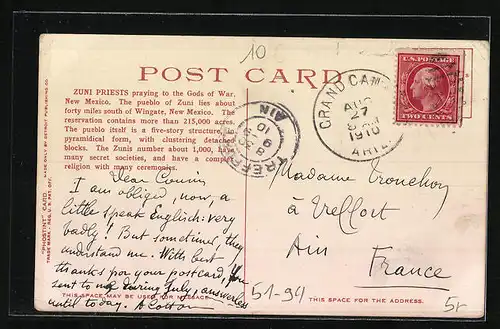 10
POST CARD
ZUNI PRIESTS praying to the Gods of War,
New Mexico. The pueblo of Zuni lies about
forty miles south of Wingate, New Mexico. The
reservation contains more than 215,000 acres.
The pueblo itself is a five-story structure, of
pyramidical form, with clustering detached
blocks. The Zunis number about 1,000, have
many secret societies, and have a complex
religion with many ceremonies.
"PHOSTINT" CARD
TRADE MARK. REG. U.S. PAT. OFF. MADE ONLY BY DETROIT PUBLISHING CO.
Dear Cousin
I am obliged, now, a
little speak Englisch: very
badly! But sometimes, they
understand me. With best
thanks for your postcard, you
sent to me during July, answerless
until to day. A
THIS SPACE MAY BE USED FOR MESSAGE
TREFFORT
AIN
GRAND CAN
AUG
27
1910
ARIZ.
U.S. POSTAGE
TWO CENTS
Madame Tronchon
à Treffort
Ain
France
51-94
THIS SPACE IS FOR THE ADDRESS.